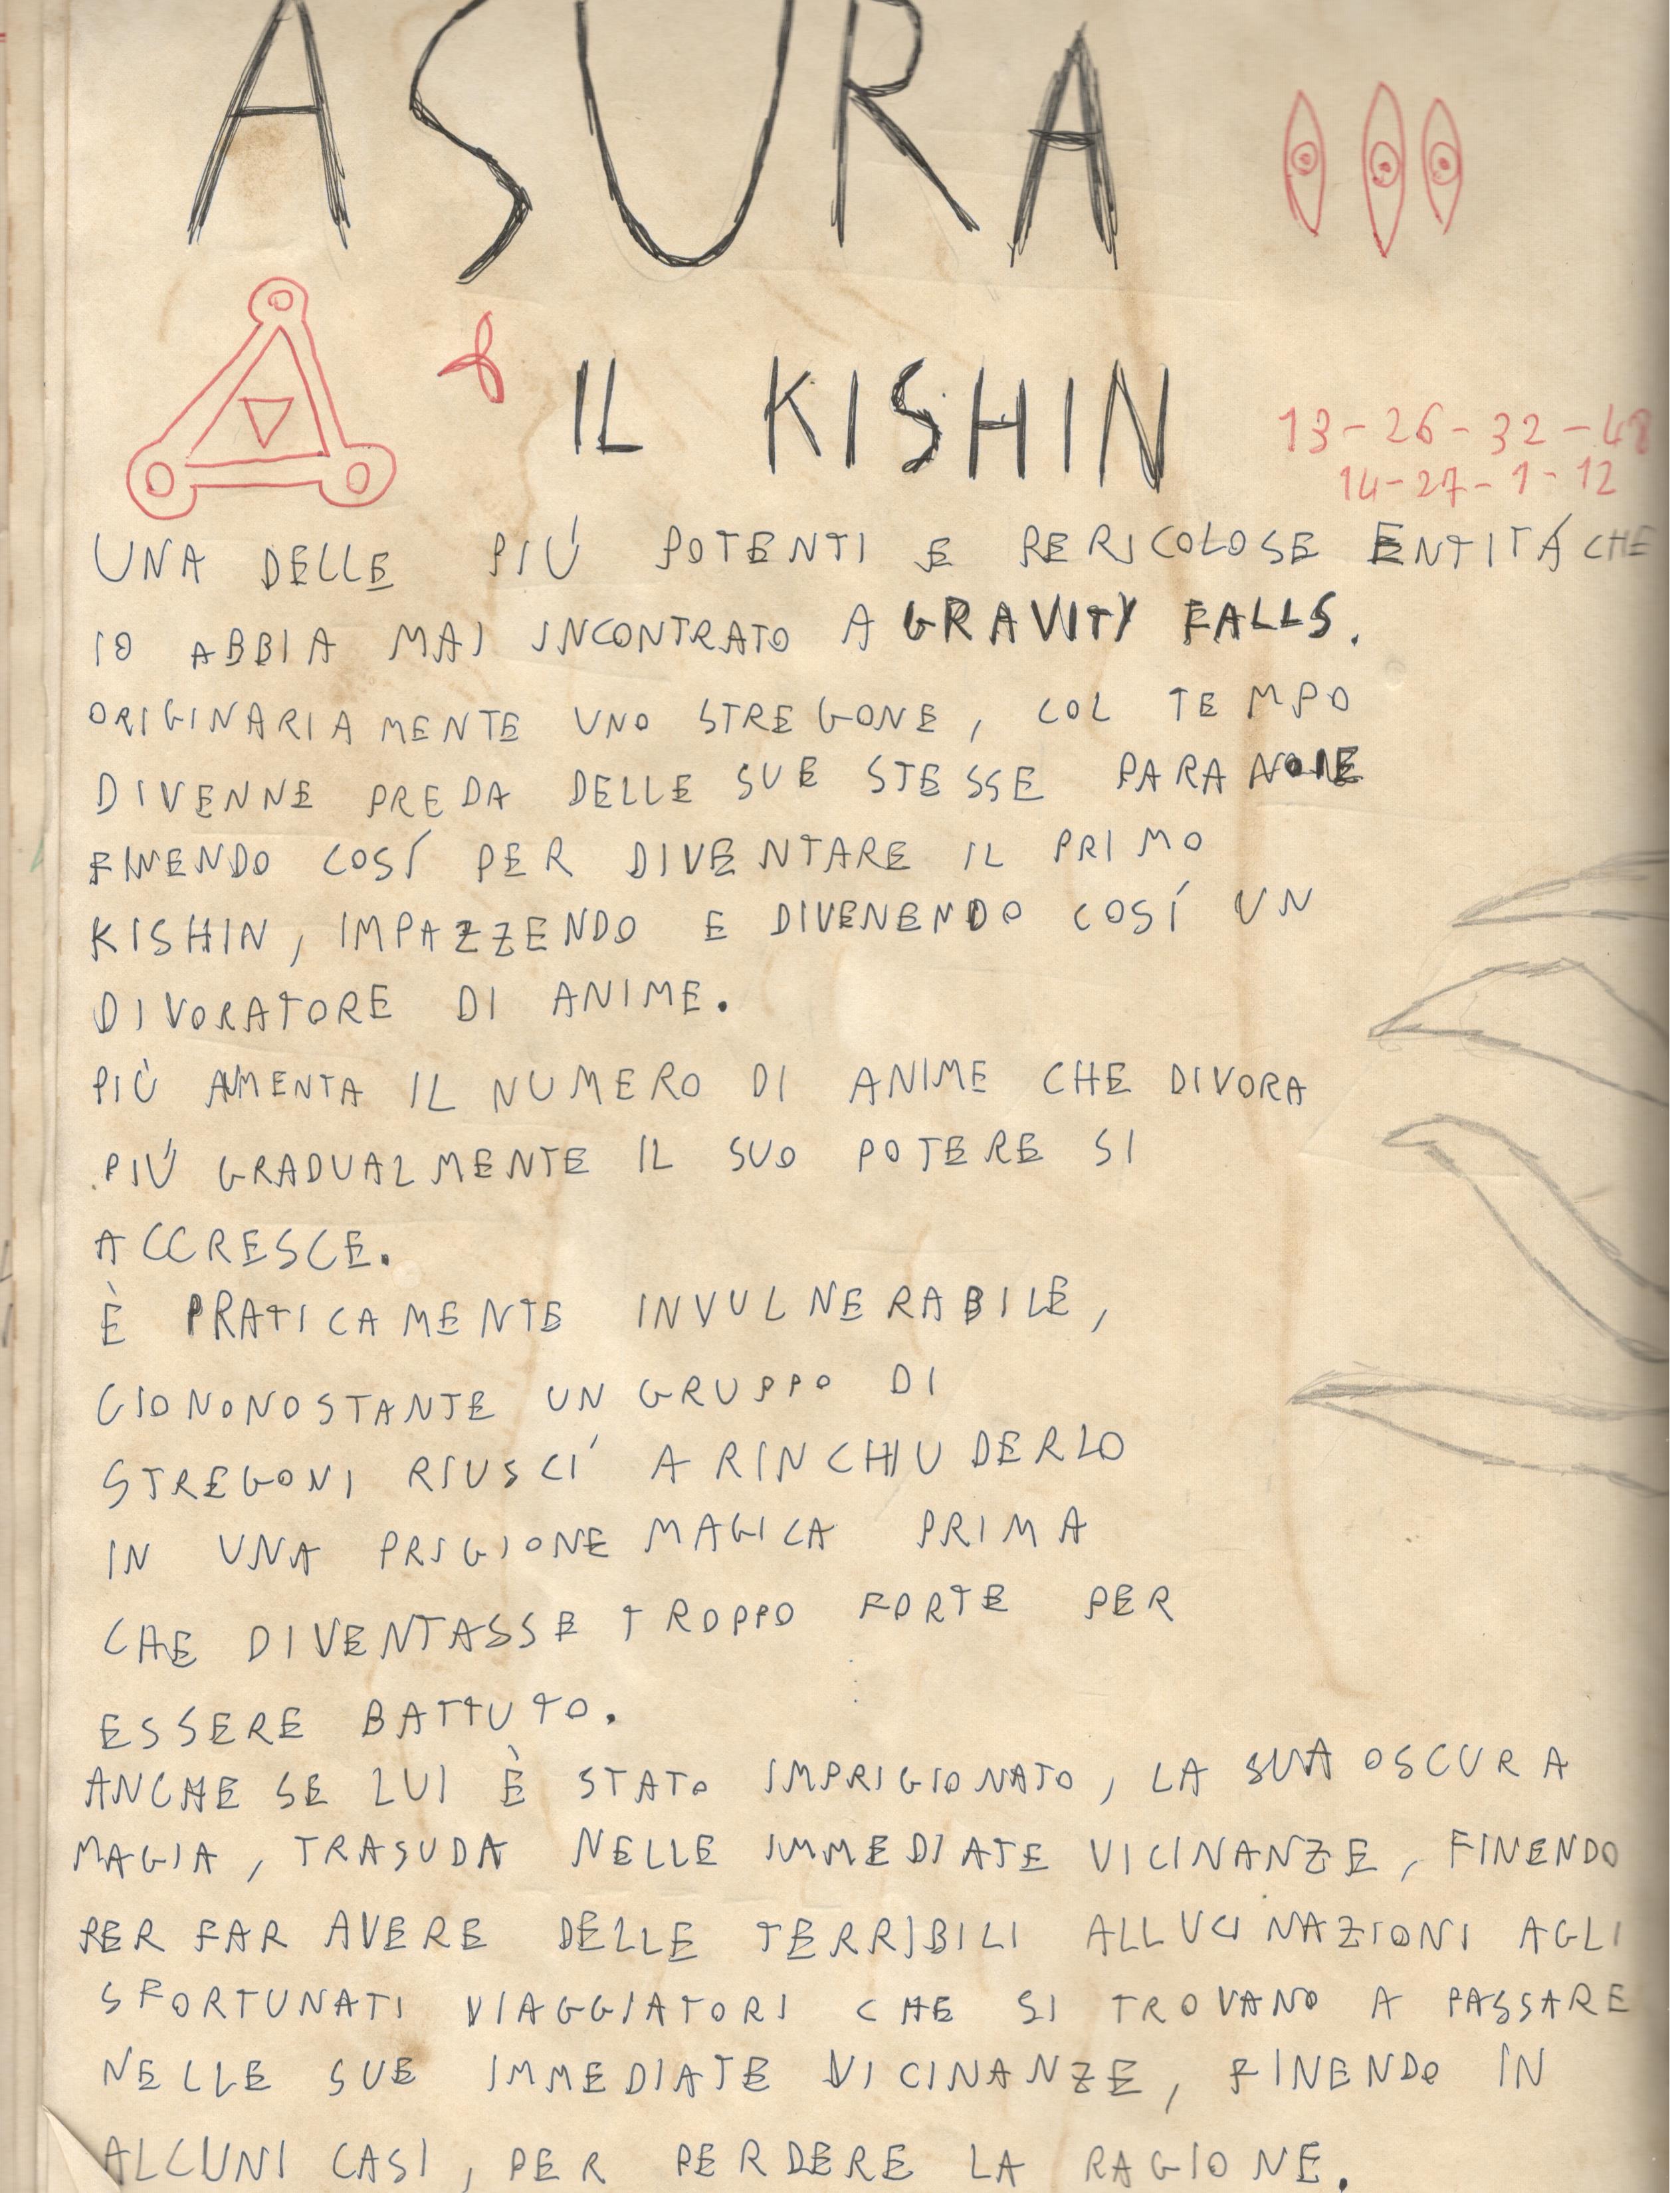 ASURA
IL KISHIN
13-26-32-48
14-27-1-12
UNA DELLE PIÚ POTENTI E PERICOLOSE ENTITÁ CHE
IO ABBIA MAI INCONTRATO A GRAVITY FALLS.
ORIGINARIAMENTE UNO STREGONE, COL TEMPO
DIVENNE PREDA DELLE SUE STESSE PARANOIE
FINENDO COSÍ PER DIVENTARE IL PRIMO
KISHIN, IMPAZZENDO E DIVENENDO COSÍ UN
DIVORATORE DI ANIME.
PIÙ AUMENTA IL NUMERO DI ANIME CHE DIVORA
PIÚ GRADUALMENTE IL SUO POTERE SI
ACCRESCE.
È PRATICAMENTE INVULNERABILE,
CIONONOSTANTE UN GRUPPO DI
STREGONI RIUSCÍ A RINCHIUDERLO
IN UNA PRIGIONE MAGICA PRIMA
CHE DIVENTASSE TROPPO FORTE PER
ESSERE BATTUTO.
ANCHE SE LUI È STATO IMPRIGIONATO, LA SUA OSCURA
MAGIA, TRASUDA NELLE IMMEDIATE VICINANZE, FINENDO
PER FAR AVERE DELLE TERRIBILI ALLUCINAZIONI AGLI
SFORTUNATI VIAGGIATORI CHE SI TROVANO A PASSARE
NELLE SUE IMMEDIATE VICINANZE, FINENDO IN
ALCUNI CASI, PER PERDERE LA RAGIONE.